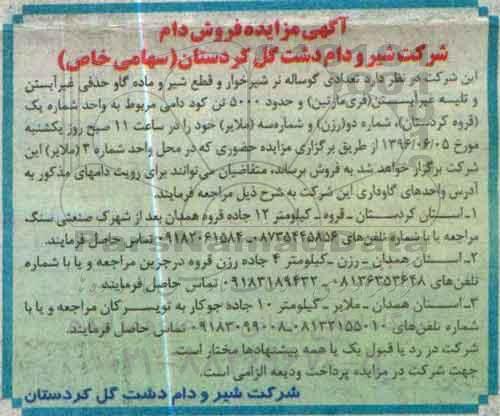 آگهی مزایده فروش دام
شرکت شیر و دام دشت گل کردستان (سهامی خاص)
این شرکت در نظر دارد تعدادی گوساله نر شیرخوار و قطع شیر و ماده گاو حذفی غیرآبستن
و تلیسه غیرآبستن (فری‌مارتین) و حدود ۵۰۰۰ تن کود دامی مربوط به واحد شماره یک
(قروه کردستان)، شماره دو (رزن) و شماره‌سه (ملایر) خود را در ساعت ۱۱ صبح روز یکشنبه
مورخ ۱۳۹۶/۰۶/۰۵ از طریق برگزاری مزایده حضوری که در محل واحد شماره ۳ (ملایر) این
شرکت برگزار خواهد شد به فروش برساند، متقاضیان می‌توانند برای رویت دامهای مذکور به
آدرس واحدهای گاوداری این شرکت به شرح ذیل مراجعه فرمایند.
۱ـ استان کردستان ـ قروه ـ کیلومتر ۱۲ جاده قروه همدان بعد از شهرک صنعتی سنگ
مراجعه یا با شماره تلفن‌های ۰۸۷۳۵۴۴۵۸۵۶ـ ۰۹۱۸۲۰۶۱۵۸۴ تماس حاصل فرمایند.
۲ـ استان همدان ـ رزن ـ کیلومتر ۴ جاده رزن قروه درجزین مراجعه و یا با شماره
تلفن‌های ۰۸۱۳۶۳۵۳۶۴۸ـ ۰۹۱۸۳۱۸۹۴۳۲ تماس حاصل فرمایند.
۳ـ استان همدان ـ ملایر ـ کیلومتر ۱۰ جاده جوکار به تویسرکان مراجعه و یا با
شماره تلفن‌های ۰۸۱۳۲۱۵۵۰۱۰ـ ۰۹۱۸۳۰۹۹۰۰۸ تماس حاصل فرمایند.
شرکت در رد یا قبول یک یا همه پیشنهادها مختار است.
جهت شرکت در مزایده پرداخت ودیعه الزامی است.
شرکت شیر و دام دشت گل کردستان